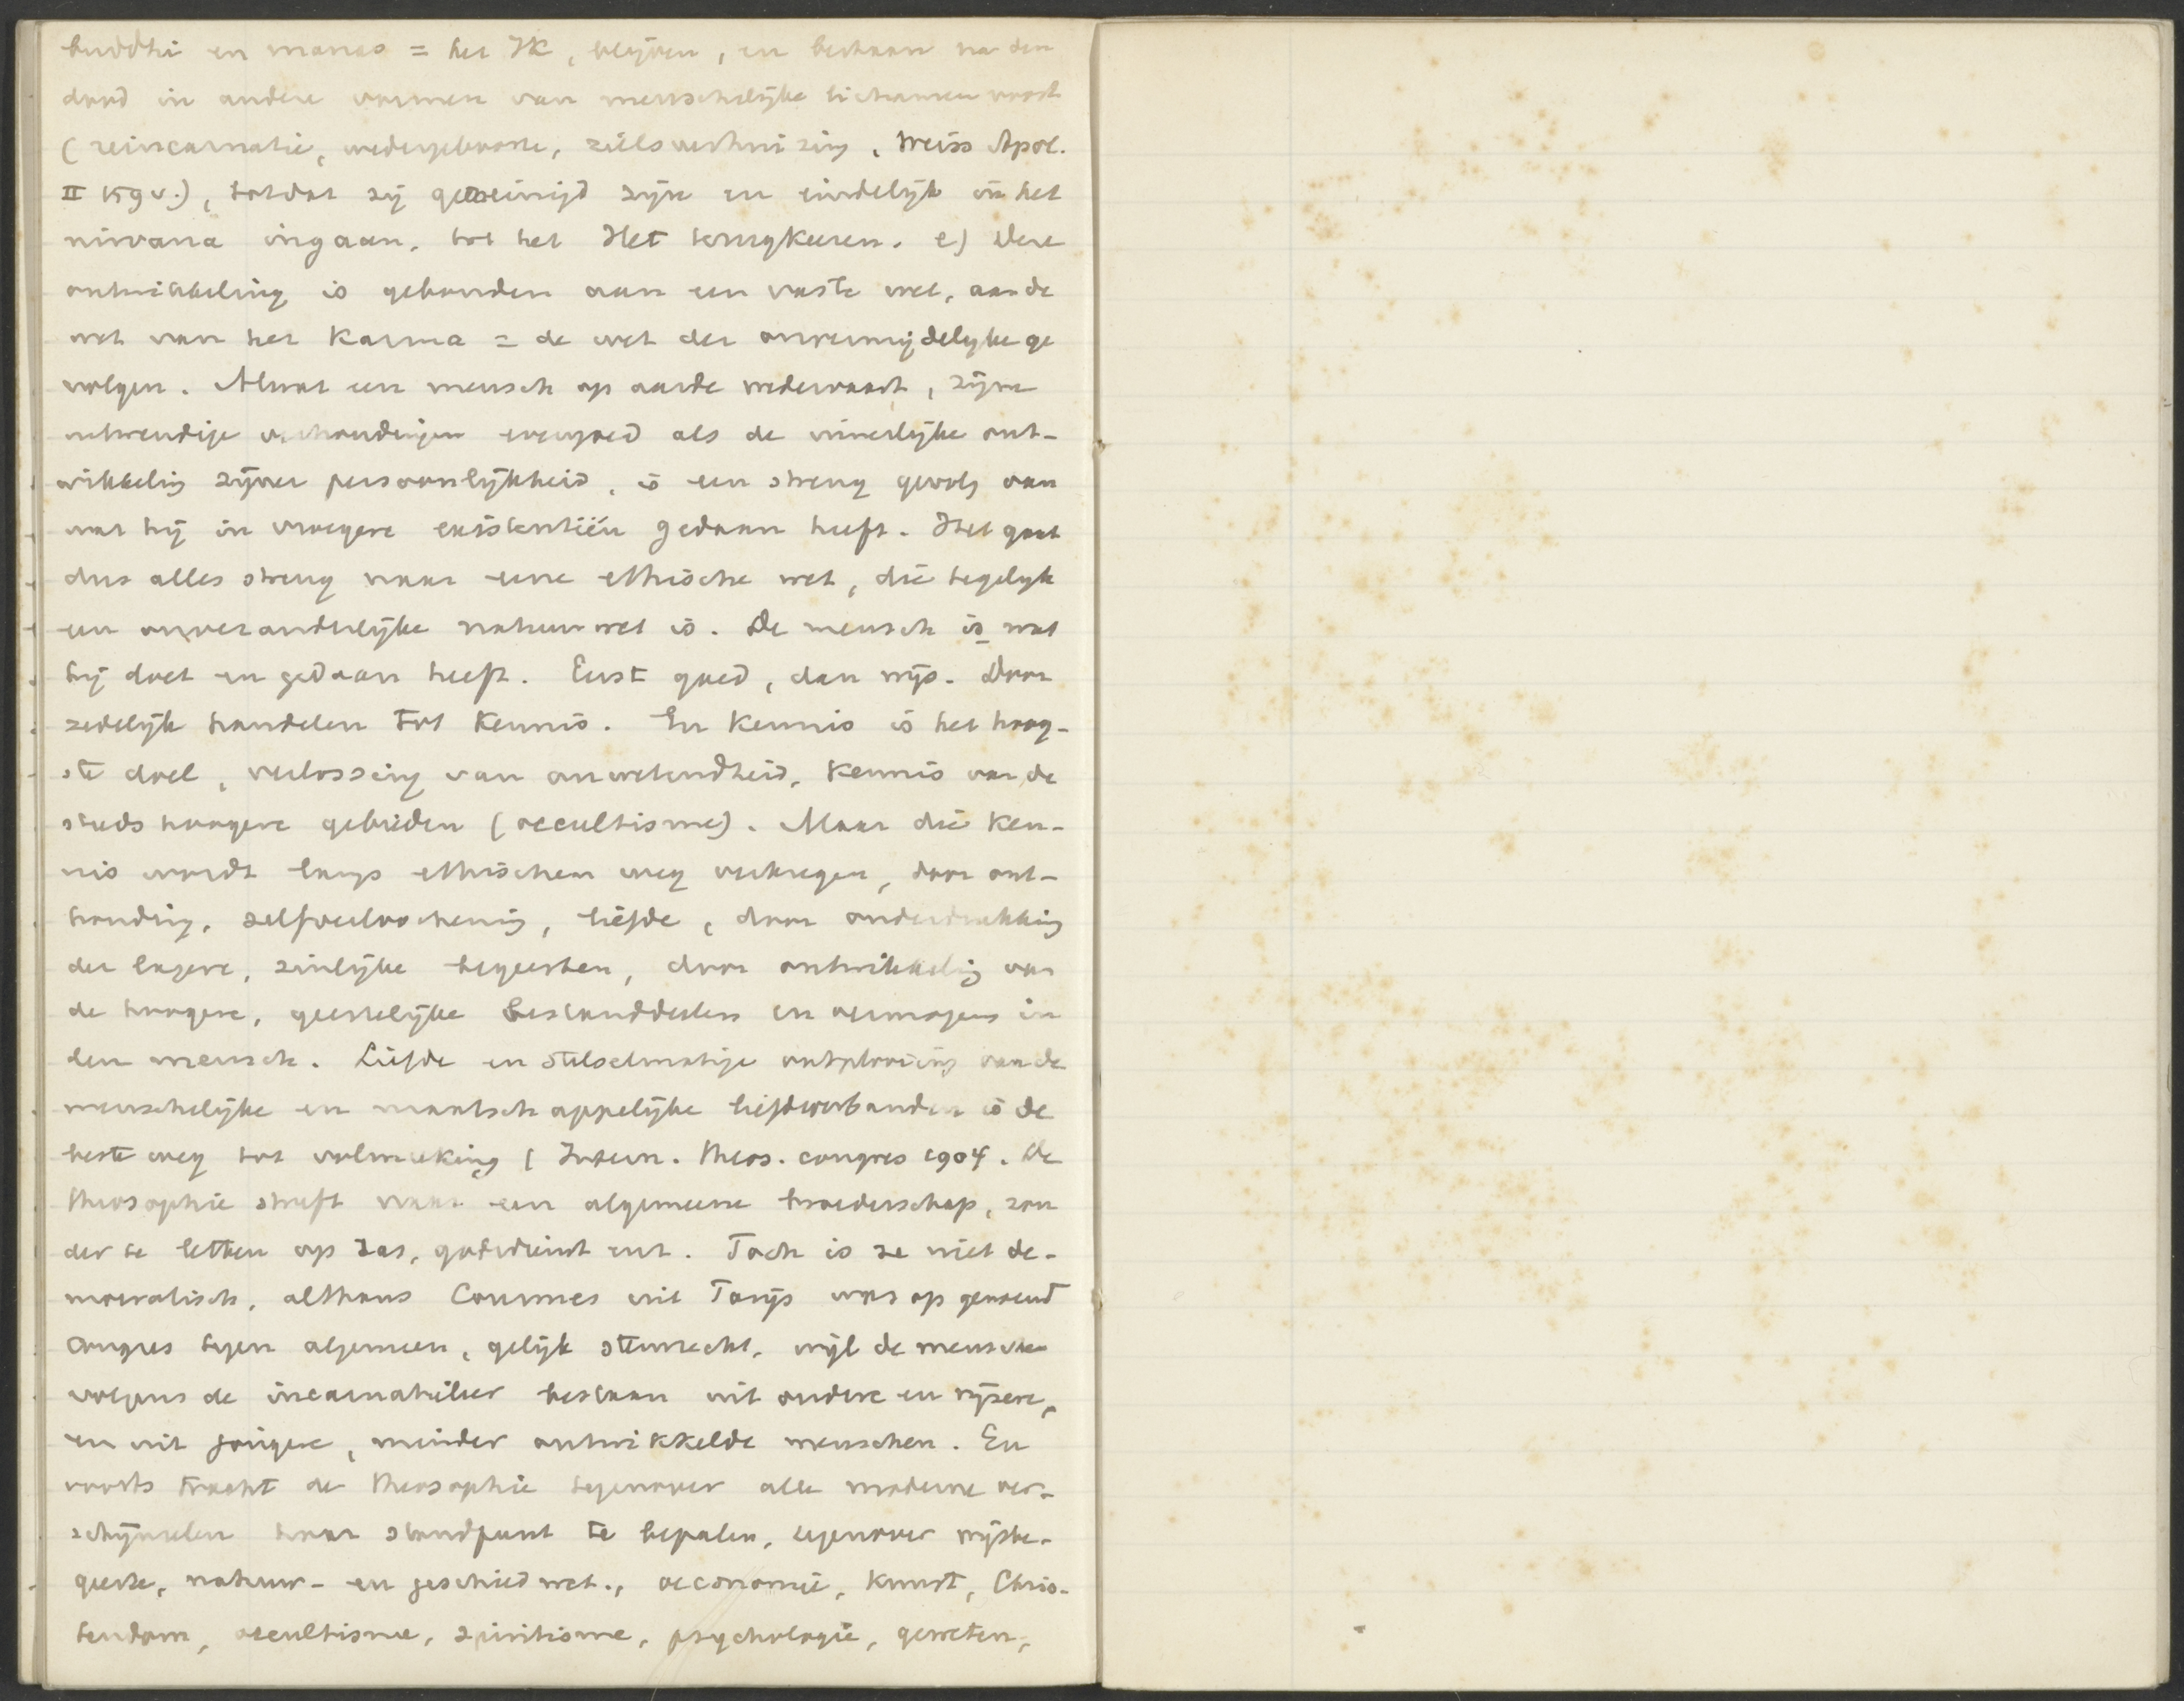 buddhi en manas = het IK, blijven, en bestaan na den
dood in andere vormen van menschelijke lichamen voort
(reincarnatie, wedergeboorte, zielsverhuizing, Weiss Apol.
II 159 v.), totdat zij gereinigd zijn en eindelijk in het
nirvana ingaan, tot het Het terugkeeren. e) Deze
ontwikkeling is gebonden aan een vaste wet, aan de
wet van het Karma = de wet der onvermijdelijke ge
volgen. Alwat een mensch op aarde wedervaart, zijne
uitwendige verhoudingen evengoed als de innerlijke ont-
wikkeling zijner persoonlijkheid, is een streng gevolg van
wat hij in vroegere existentiën gedaan heeft. Het gaat
dus alles streng naar eene ethische wet, die tegelijk
een onveranderlijke natuurwet is. De mensch is wat
hij doet en gedaan heeft. Eerst goed, dan wijs. Door
zedelijk handelen tot Kennis. En Kennis is het hoog-
ste doel, verlossing van onwetendheid, Kennis van de
steeds hoogere gebieden (occultisme). Maar die Ken-
nis wordt langs ethischen weg verkregen, door ont-
houding, zelfverloochening, liefde, door onderdrukking
der lagere, zinlijke begeerten, door ontwikkeling van
de hoogere, geestelijke bestanddeelen en vermogens in
den mensch. Liefde en stelselmatige ontplooiing van de
menschelijke en maatschappelijke liefdeverbanden is de
beste weg tot volmaking (Intern. Theos. congres 1904. De
Theosophie streft naar een algemeene broederschap, zon
der te letten op ras, godsdienst enz. Toch is ze niet de-
mocratisch, althans Courmes uit Parijs was op genoemd
Congres tegen algemeen, gelijk stemrecht, wijl de menschen
volgens de incarnatieleer bestaan uit oudere en wijzere,
en uit jongere, minder ontwikkelde menschen. En
voorts tracht de Theosophie tegenover alle moderne ver-
schijnselen haar standpunt te bepalen, tegenover wijsbe-
geerte, natuur- en geschied wet., oeconomie, Kunst, Chris-
tendom, occultisme, spiritisme, psychologie, geweten,